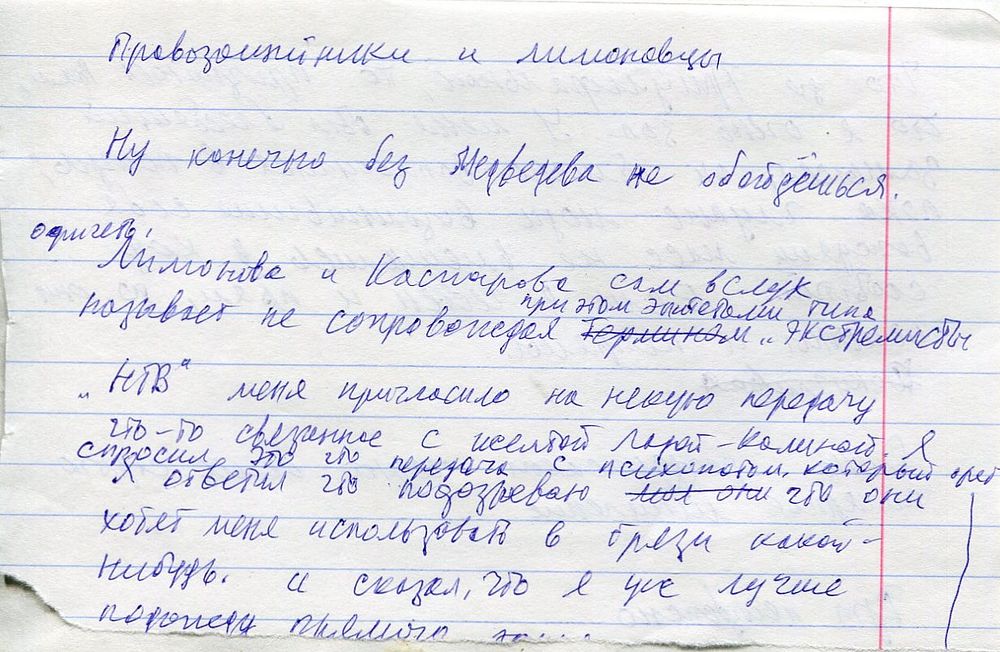 Правозащитники и лимоновцы
Ну конечно без Медведева не обойдёшься.
Лимонова и Каспарова сам вслух
называет не сопровождая термином
при этом эпитетами типа
„экстремисты
„НТВ" меня пригласило на некую передачу
что-то связанное с желтой Ладой-Калиной. Я
спросил это что передача с психопатом, который орет
Я ответил что подозреваю что они
хотят меня использовать в грязи какой-
нибудь. И сказал, что я уж лучше
подожду прямого